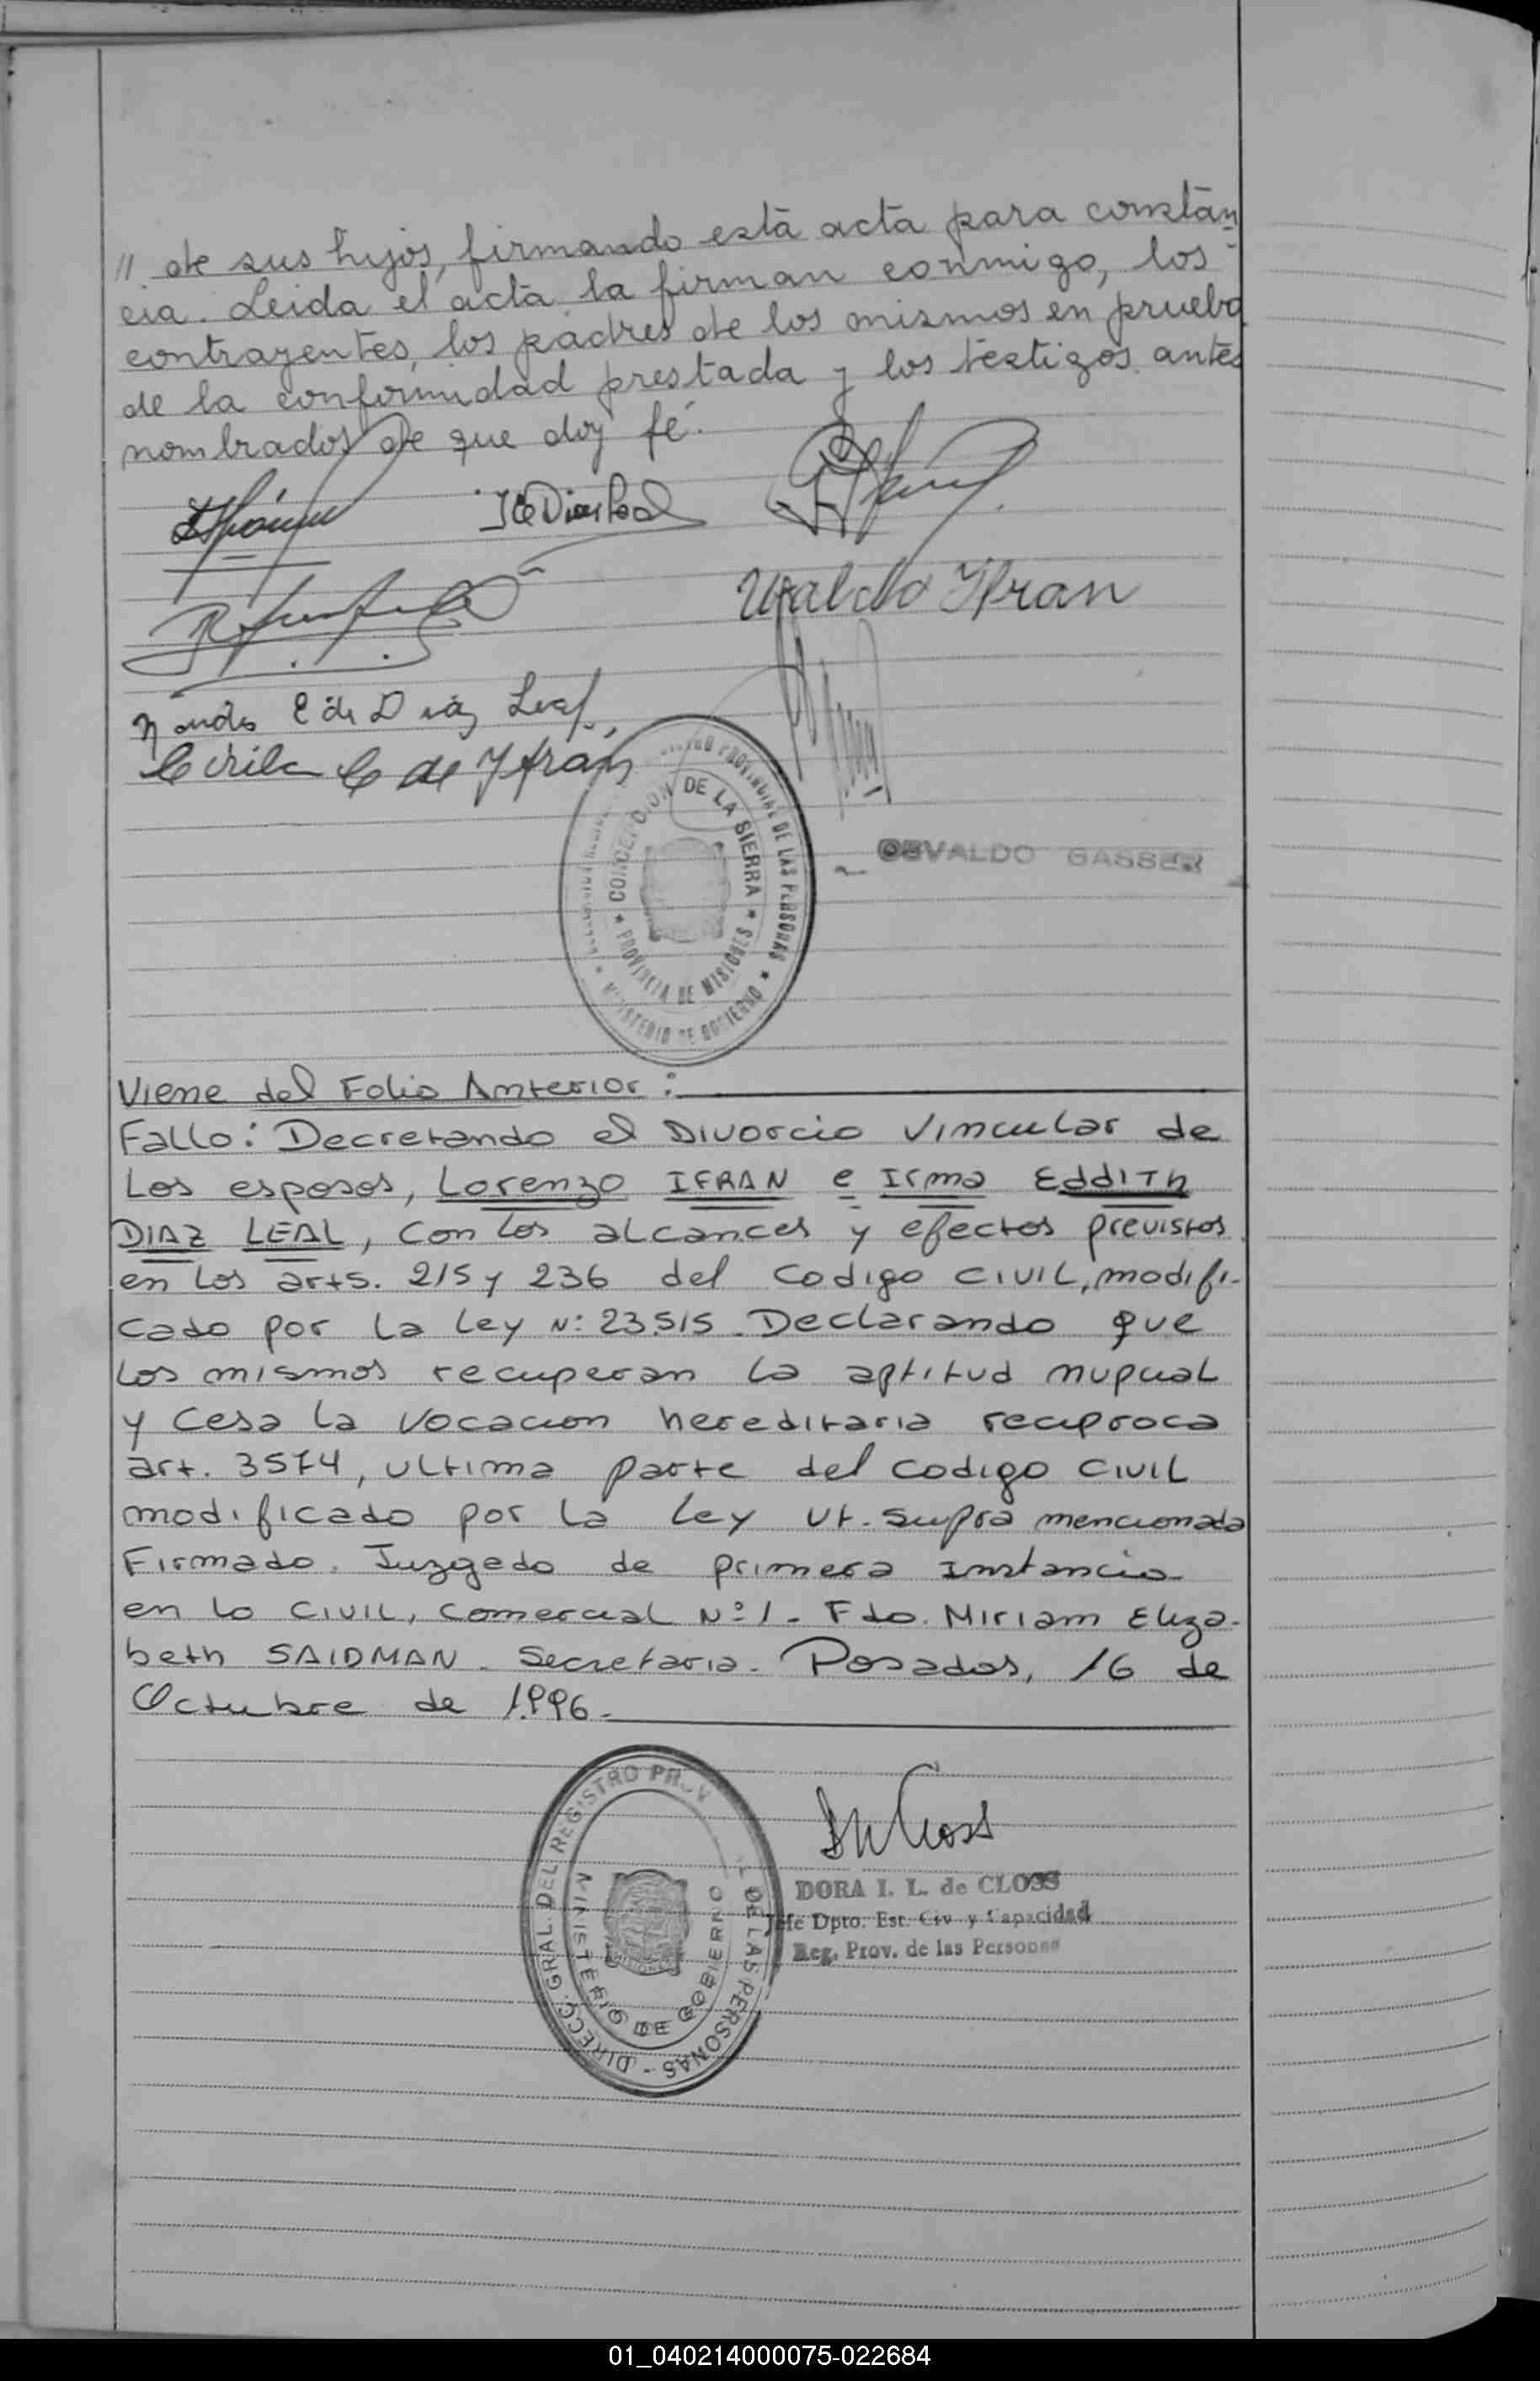 // de sus hijos, firmando está acta para constan
cia. Leida el acta la firman conmigo, los
contrayentes, los padres de los mismos en prueba
de la conformidad prestada y los testigos antes
nombrados de que doy fé.
Waldo Ifran
E de Diaz Leal
Cirila C de Ifran
CONCEPCION DE LA SIERRA * PROVINCIA DE MISIONES *
PROVINCIAL DE LAS PERSONAS * MINISTERIO DE GOBIERNO *
OSVALDO GASSER
Viene del Folio Anterior:
Fallo: Decretando el Divorcio Vincular de
Los esposos, Lorenzo IFRAN e Irma EddITh
DIAZ LEAL, con los alcances y efectos previstos
en Los arts. 215 y 236 del Codigo CIVIL, modifi-
cado por La Ley N: 23.515. Declarando que
Los mismos recuperan la aptitud nupcial
y cesa la vocacion hereditaria reciproca
art. 3574, ultima parte del codigo CIVIL
modificado por la Ley Ut. supra mencionada
Firmado. Juzgado de primera Instancia
en lo CIVIL, Comercial Nº 1. Fdo. Miriam Eliza-
beth SAIDMAN. Secretaria. Posadas, 16 de
Octubre de 1.996.
DIRECC. GRAL. DEL REGISTRO PROV L DE LAS PERSONAS -
MINISTERIO DE GOBIERNO
DORA I. L. de CLOSS
Jefe Dpto. Est. Civ. y Capacidad
Reg. Prov. de las Personas
01_040214000075-022684